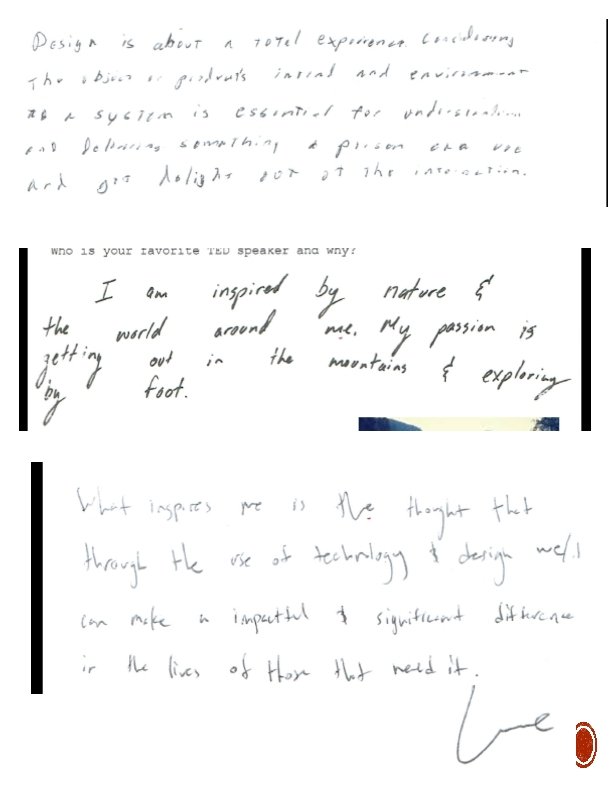 Design is about a total experience. Considering
the object or product's intent and environment
as a system is essential for understanding
and delivering something a person can use
and get delight out of the interaction.
Who is your favorite TED speaker and why?
I am inspired by nature &
the world around me. My passion is
getting out in the mountains & exploring
by foot.
What inspires me is the thought that
through the use of technology & design we/I
can make a impactful & significant difference
in the lives of those that need it.